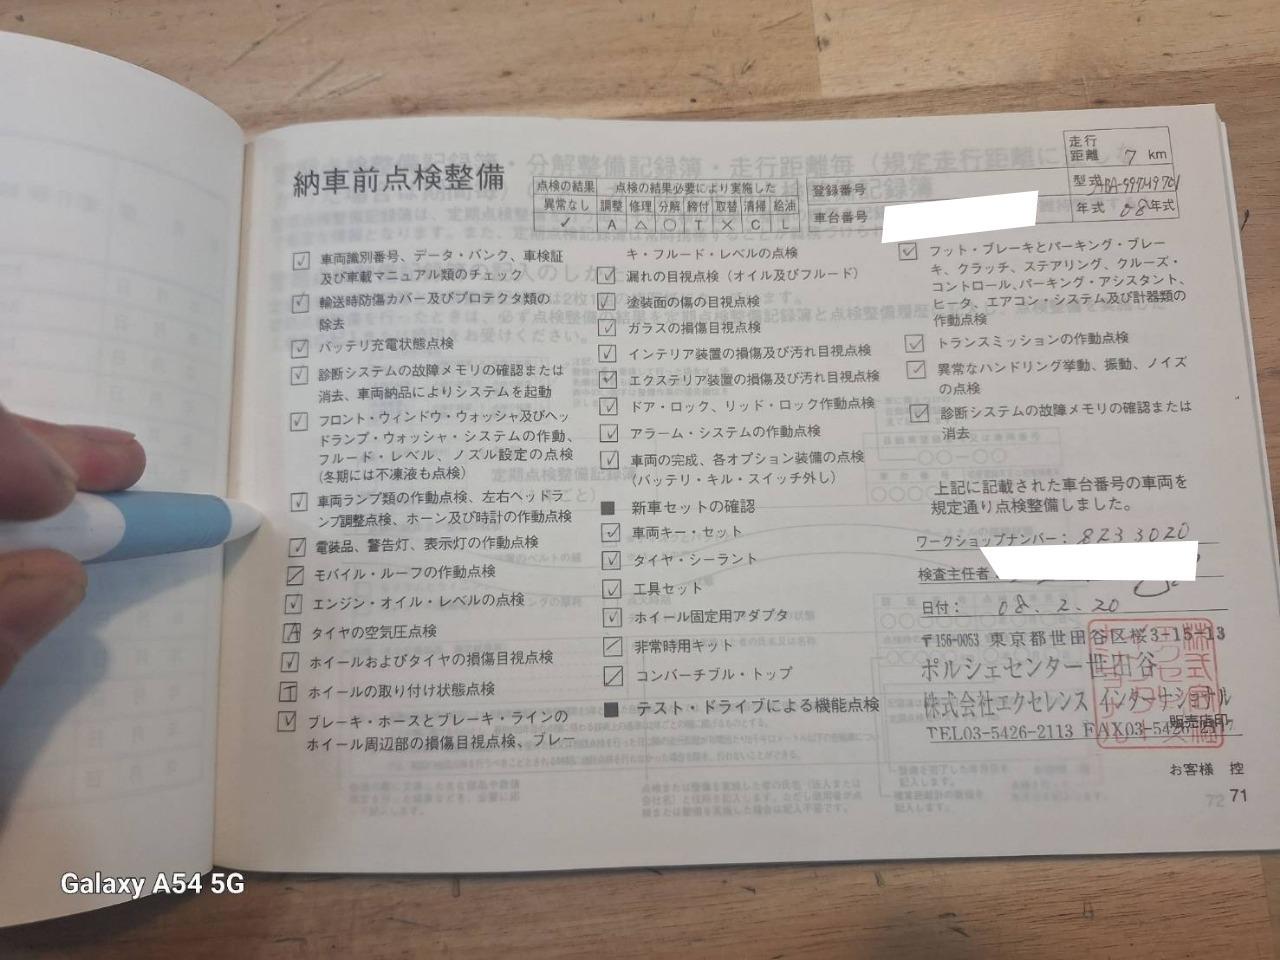 納車前点検整備
点検の結果 点検の結果必要により実施した
異常なし 調整 修理 分解 締付 取替 清掃 給油
✓ A △ ○ T × C L
登録番号
車台番号
走行距離 7 km
型式
年式 08年式
☑ 車両識別番号、データ・バンク、車検証
及び車載マニュアル類のチェック
☑ 輸送時防傷カバー及びプロテクタ類の
除去
☑ バッテリ充電状態点検
☑ 診断システムの故障メモリの確認または
消去、車両納品によりシステムを起動
☑ フロント・ウィンドウ・ウォッシャ及びヘッ
ドランプ・ウォッシャ・システムの作動、
フルード・レベル、ノズル設定の点検
(冬期には不凍液も点検)
☑ 車両ランプ類の作動点検、左右ヘッドラ
ンプ調整点検、ホーン及び時計の作動点検
☑ 電装品、警告灯、表示灯の作動点検
モバイル・ルーフの作動点検
☑ エンジン・オイル・レベルの点検
A タイヤの空気圧点検
☑ ホイールおよびタイヤの損傷目視点検
T ホイールの取り付け状態点検
☑ ブレーキ・ホースとブレーキ・ラインの
ホイール周辺部の損傷目視点検、ブレー
キ・フルード・レベルの点検
☑ 漏れの目視点検(オイル及びフルード)
☑ 塗装面の傷の目視点検
☑ ガラスの損傷目視点検
☑ インテリア装置の損傷及び汚れ目視点検
☑ エクステリア装置の損傷及び汚れ目視点検
☑ ドア・ロック、リッド・ロック作動点検
☑ アラーム・システムの作動点検
☑ 車両の完成、各オプション装備の点検
(バッテリ・キル・スイッチ外し)
■ 新車セットの確認
☑ 車両キー・セット
☑ タイヤ・シーラント
☑ 工具セット
☑ ホイール固定用アダプタ
非常時用キット
コンバーチブル・トップ
■ テスト・ドライブによる機能点検
☑ フット・ブレーキとパーキング・ブレー
キ、クラッチ、ステアリング、クルーズ・
コントロール、パーキング・アシスタント、
ヒータ、エアコン・システム及び計器類の
作動点検
☑ トランスミッションの作動点検
☑ 異常なハンドリング挙動、振動、ノイズ
の点検
☑ 診断システムの故障メモリの確認または
消去
上記に記載された車台番号の車両を
規定通り点検整備しました。
ワークショップナンバー: 8233020
検査主任者:
日付: 08. 2. 20
〒156-0053 東京都世田谷区桜3-15-13
ポルシェセンター世田谷
株式会社エクセレンス インターナショナル
販売店印
TEL03-5426-2113 FAX03-5426-2117
お客様 控
71
Galaxy A54 5G